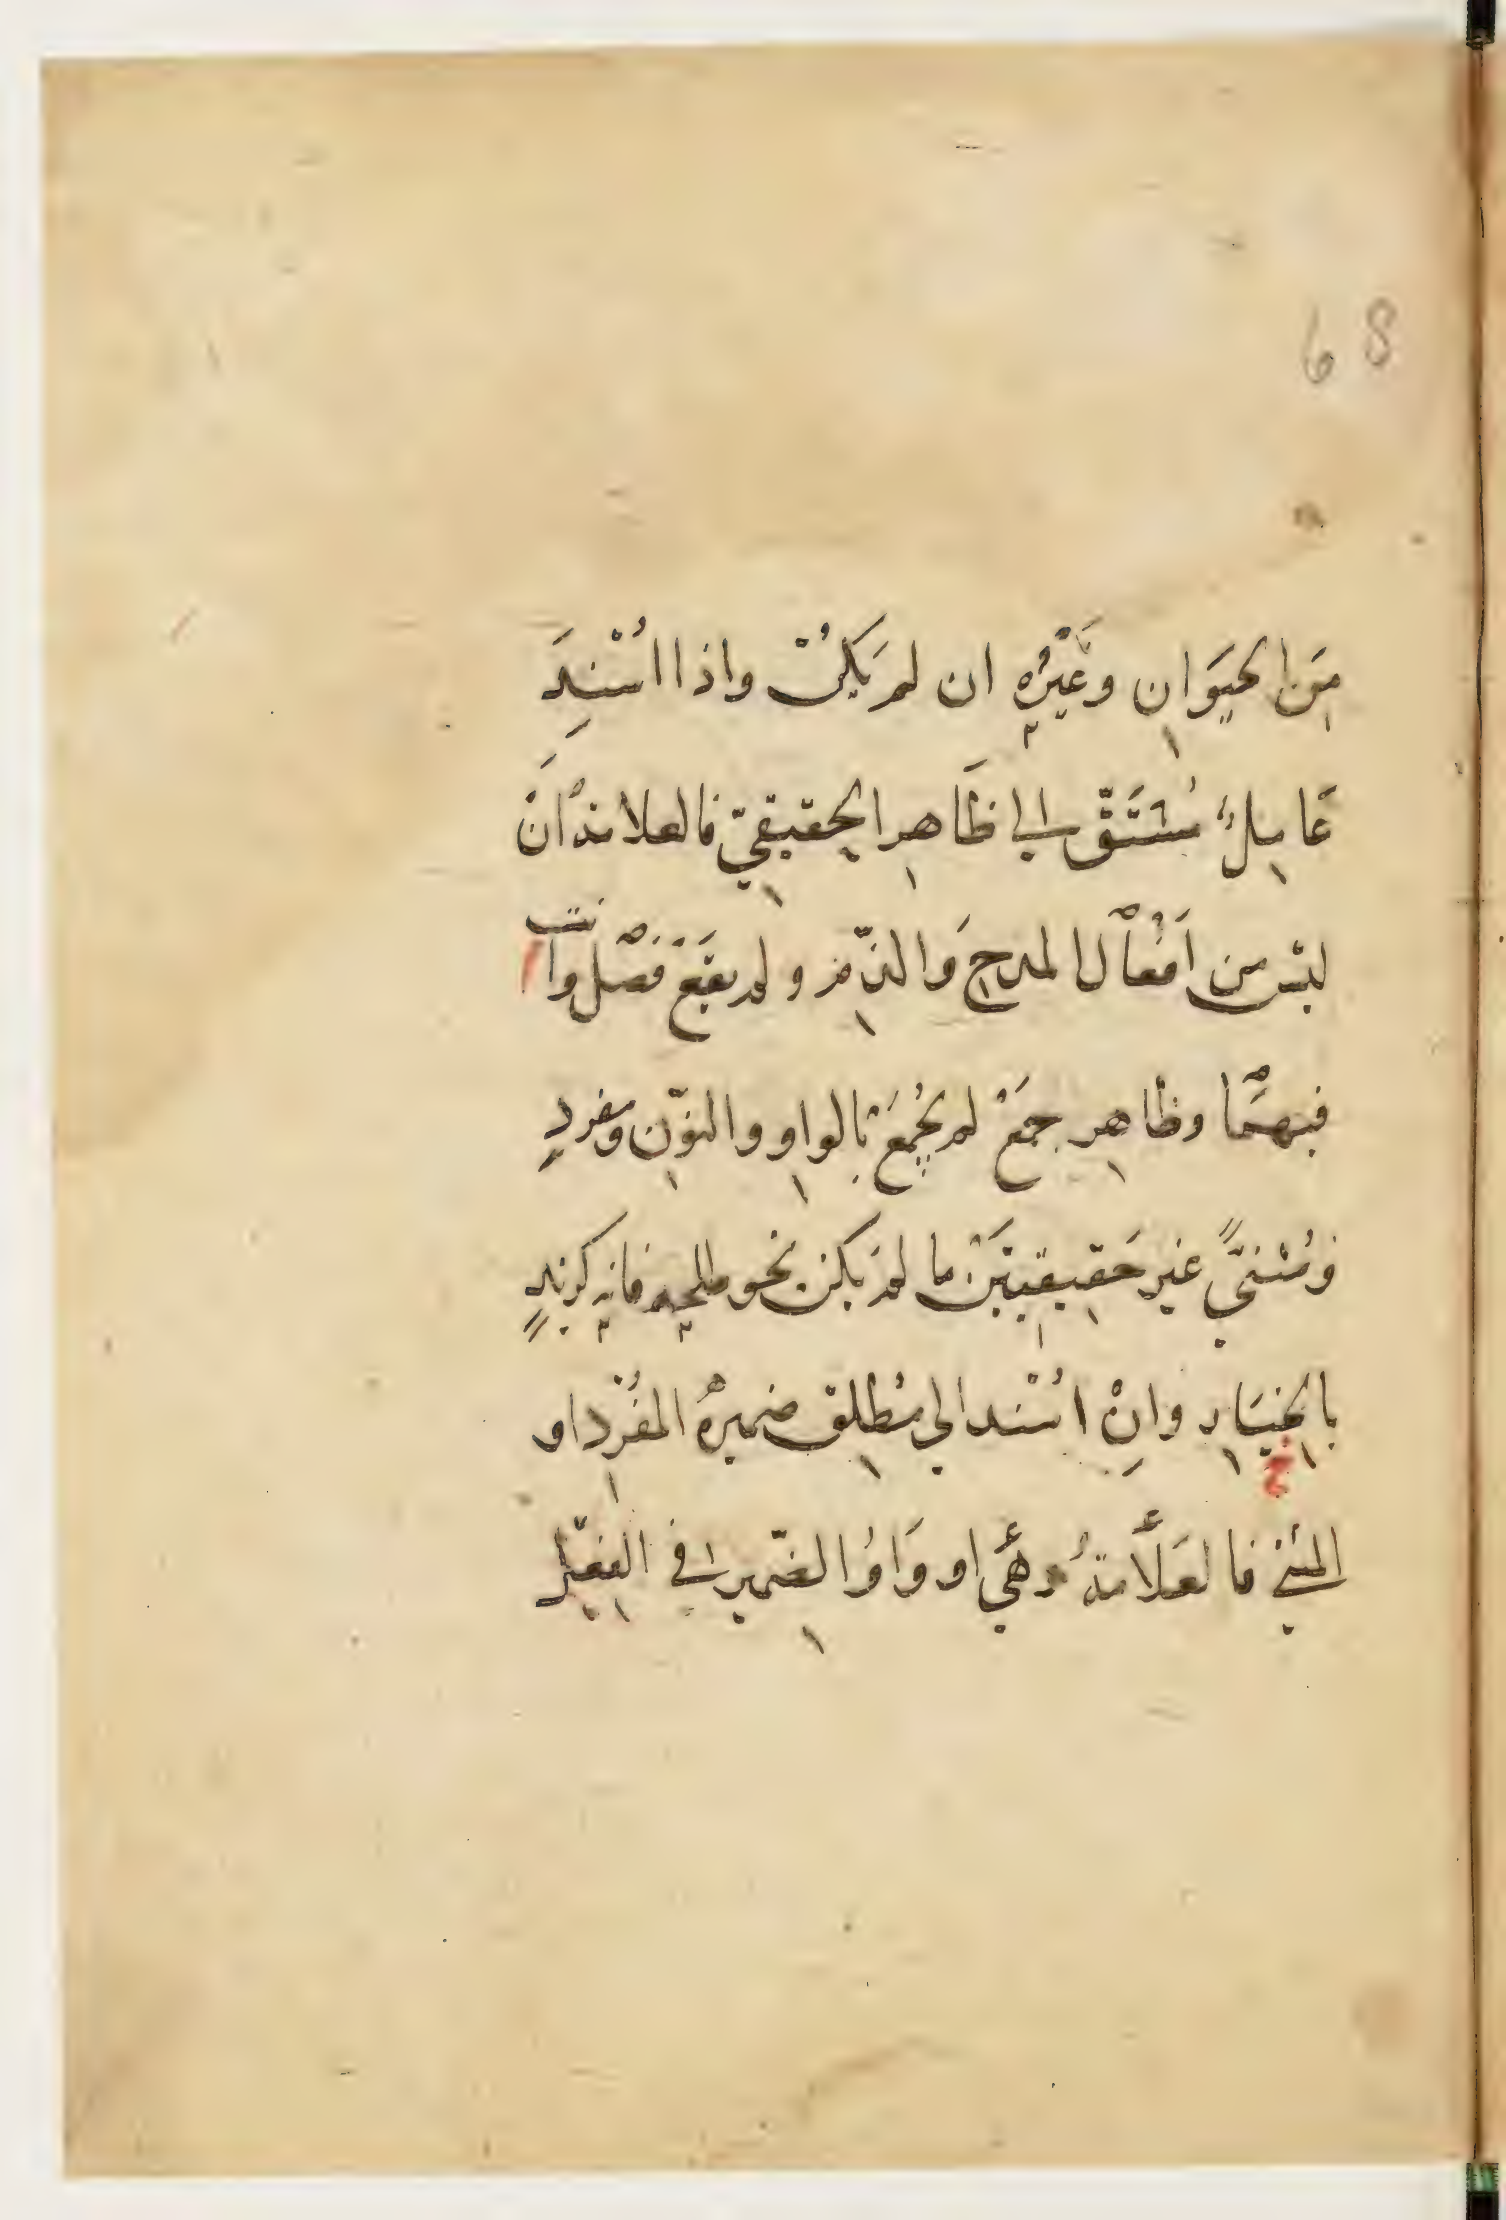 68
مِنَ الحيَوَانِ وغَيْرُه ان لم يَكُنْ واذا اسُنْنِدَ
عَامِلٌ مُشتَقّ الى ظَاهِرِ الحقيقيّ فالعلامةُ انْ
ليْسَ من اَفْعَالِ المدحِ وَالذّمّ ولم يقَعْ فَصْل وانت
فيهمَا وظاهرِ جمَعْ لم يُجْمَعْ بالواوِ والنوّن ومفردٍ
ومُثنىًّ غير حَقيقيّيَن ما لم يَكن نحو طلحه فانه كزيدٍ
بالخيَارِ وانِْ اسُنْد الى مُطلق ضميرهُ المفُرْد او
المثنى فالعَلاَّمةُ هَي او وَاوُ الضّمير في